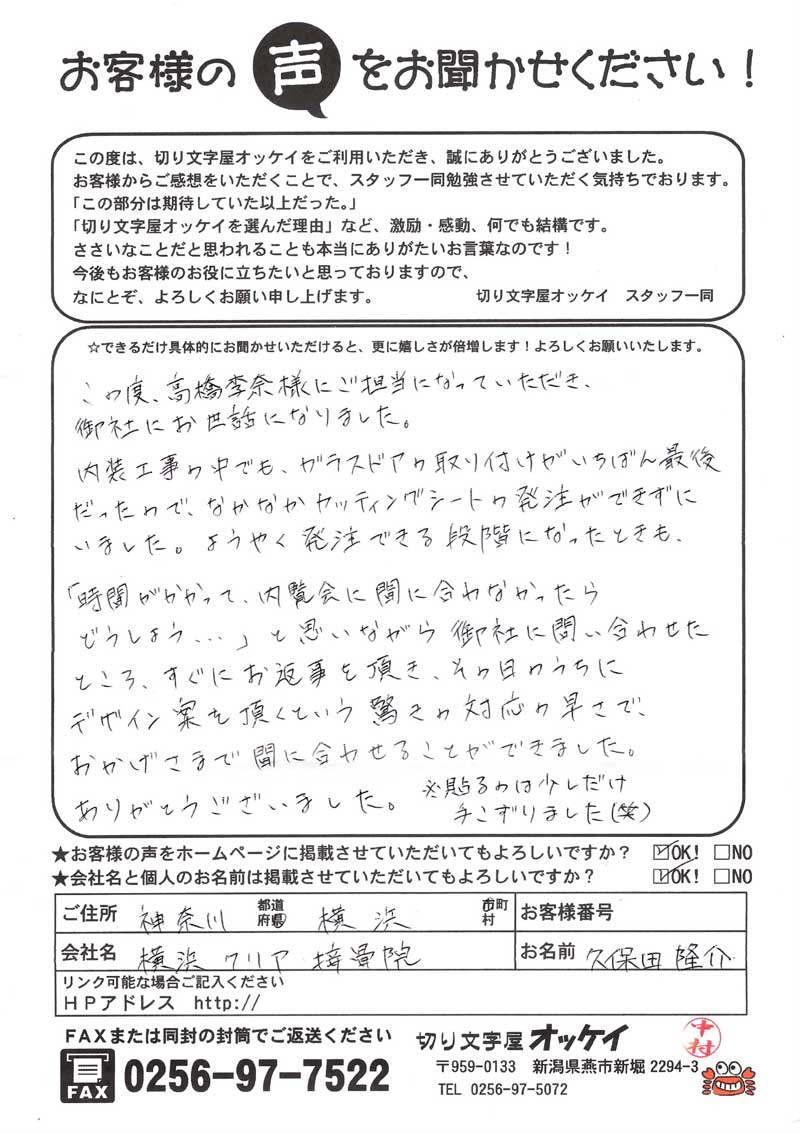 お客様の声をお聞かせください！
この度は、切り文字屋オッケイをご利用いただき、誠にありがとうございました。
お客様からご感想をいただくことで、スタッフ一同勉強させていただく気持ちでおります。
「この部分は期待していた以上だった。」
「切り文字屋オッケイを選んだ理由」など、激励・感動、何でも結構です。
ささいなことだと思われることも本当にありがたいお言葉なのです！
今後もお客様のお役に立ちたいと思っておりますので、
なにとぞ、よろしくお願い申し上げます。　切り文字屋オッケイ　スタッフ一同
☆できるだけ具体的にお聞かせいただけると、更に嬉しさが倍増します！よろしくお願いいたします。
この度、高橋李奈様にご担当になっていただき、
御社にお世話になりました。
内装工事の中でも、ガラスドアの取り付けがいちばん最後
だったので、なかなかカッティングシートの発注ができずに
いました。ようやく発注できる段階になったときも、
「時間がかかって、内覧会に間に合わなかったら
どうしよう...」と思いながら御社に問い合わせた
ところ、すぐにお返事を頂き、その日のうちに
デザイン案を頂くという驚きの対応の早さで、
おかげさまで間に合わせることができました。
ありがとうございました。
※貼るのは少しだけ
手こずりました(笑)
★お客様の声をホームページに掲載させていただいてもよろしいですか？　☑OK! □NO
★会社名と個人のお名前は掲載させていただいてもよろしいですか？　☑OK! □NO
ご住所　神奈川　都道府県　横浜　市町村　お客様番号
会社名　横浜クリア接骨院　お名前　久保田隆介
リンク可能な場合ご記入ください
ＨＰアドレス　http://
FAXまたは同封の封筒でご返送ください
FAX 0256-97-7522
切り文字屋オッケイ
中村
〒959-0133　新潟県燕市新堀 2294-3
TEL 0256-97-5072